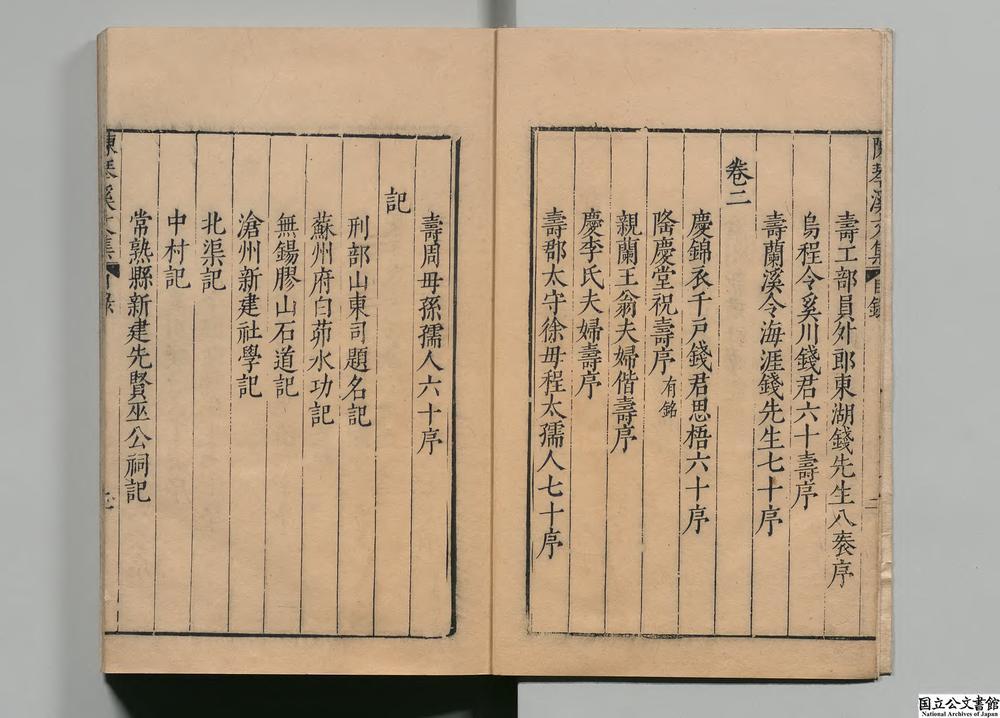 陳琴溪文集 目錄
壽工部員外郎東湖錢先生八袠序
烏程令奚川錢君六十壽序
壽蘭溪令海涯錢先生七十序
卷二
慶錦衣千戶錢君思梧六十序
隆慶堂祝壽序 有銘
親蘭王翁夫婦偕壽序
慶李氏夫婦壽序
壽郡太守徐母程太孺人七十序
壽周母孫孺人六十序
記
刑部山東司題名記
蘇州府白茆水功記
無錫膠山石道記
滄州新建社學記
北渠記
中村記
常熟縣新建先賢巫公祠記
陳琴溪文集 目錄
国立公文書館
National Archives of Japan